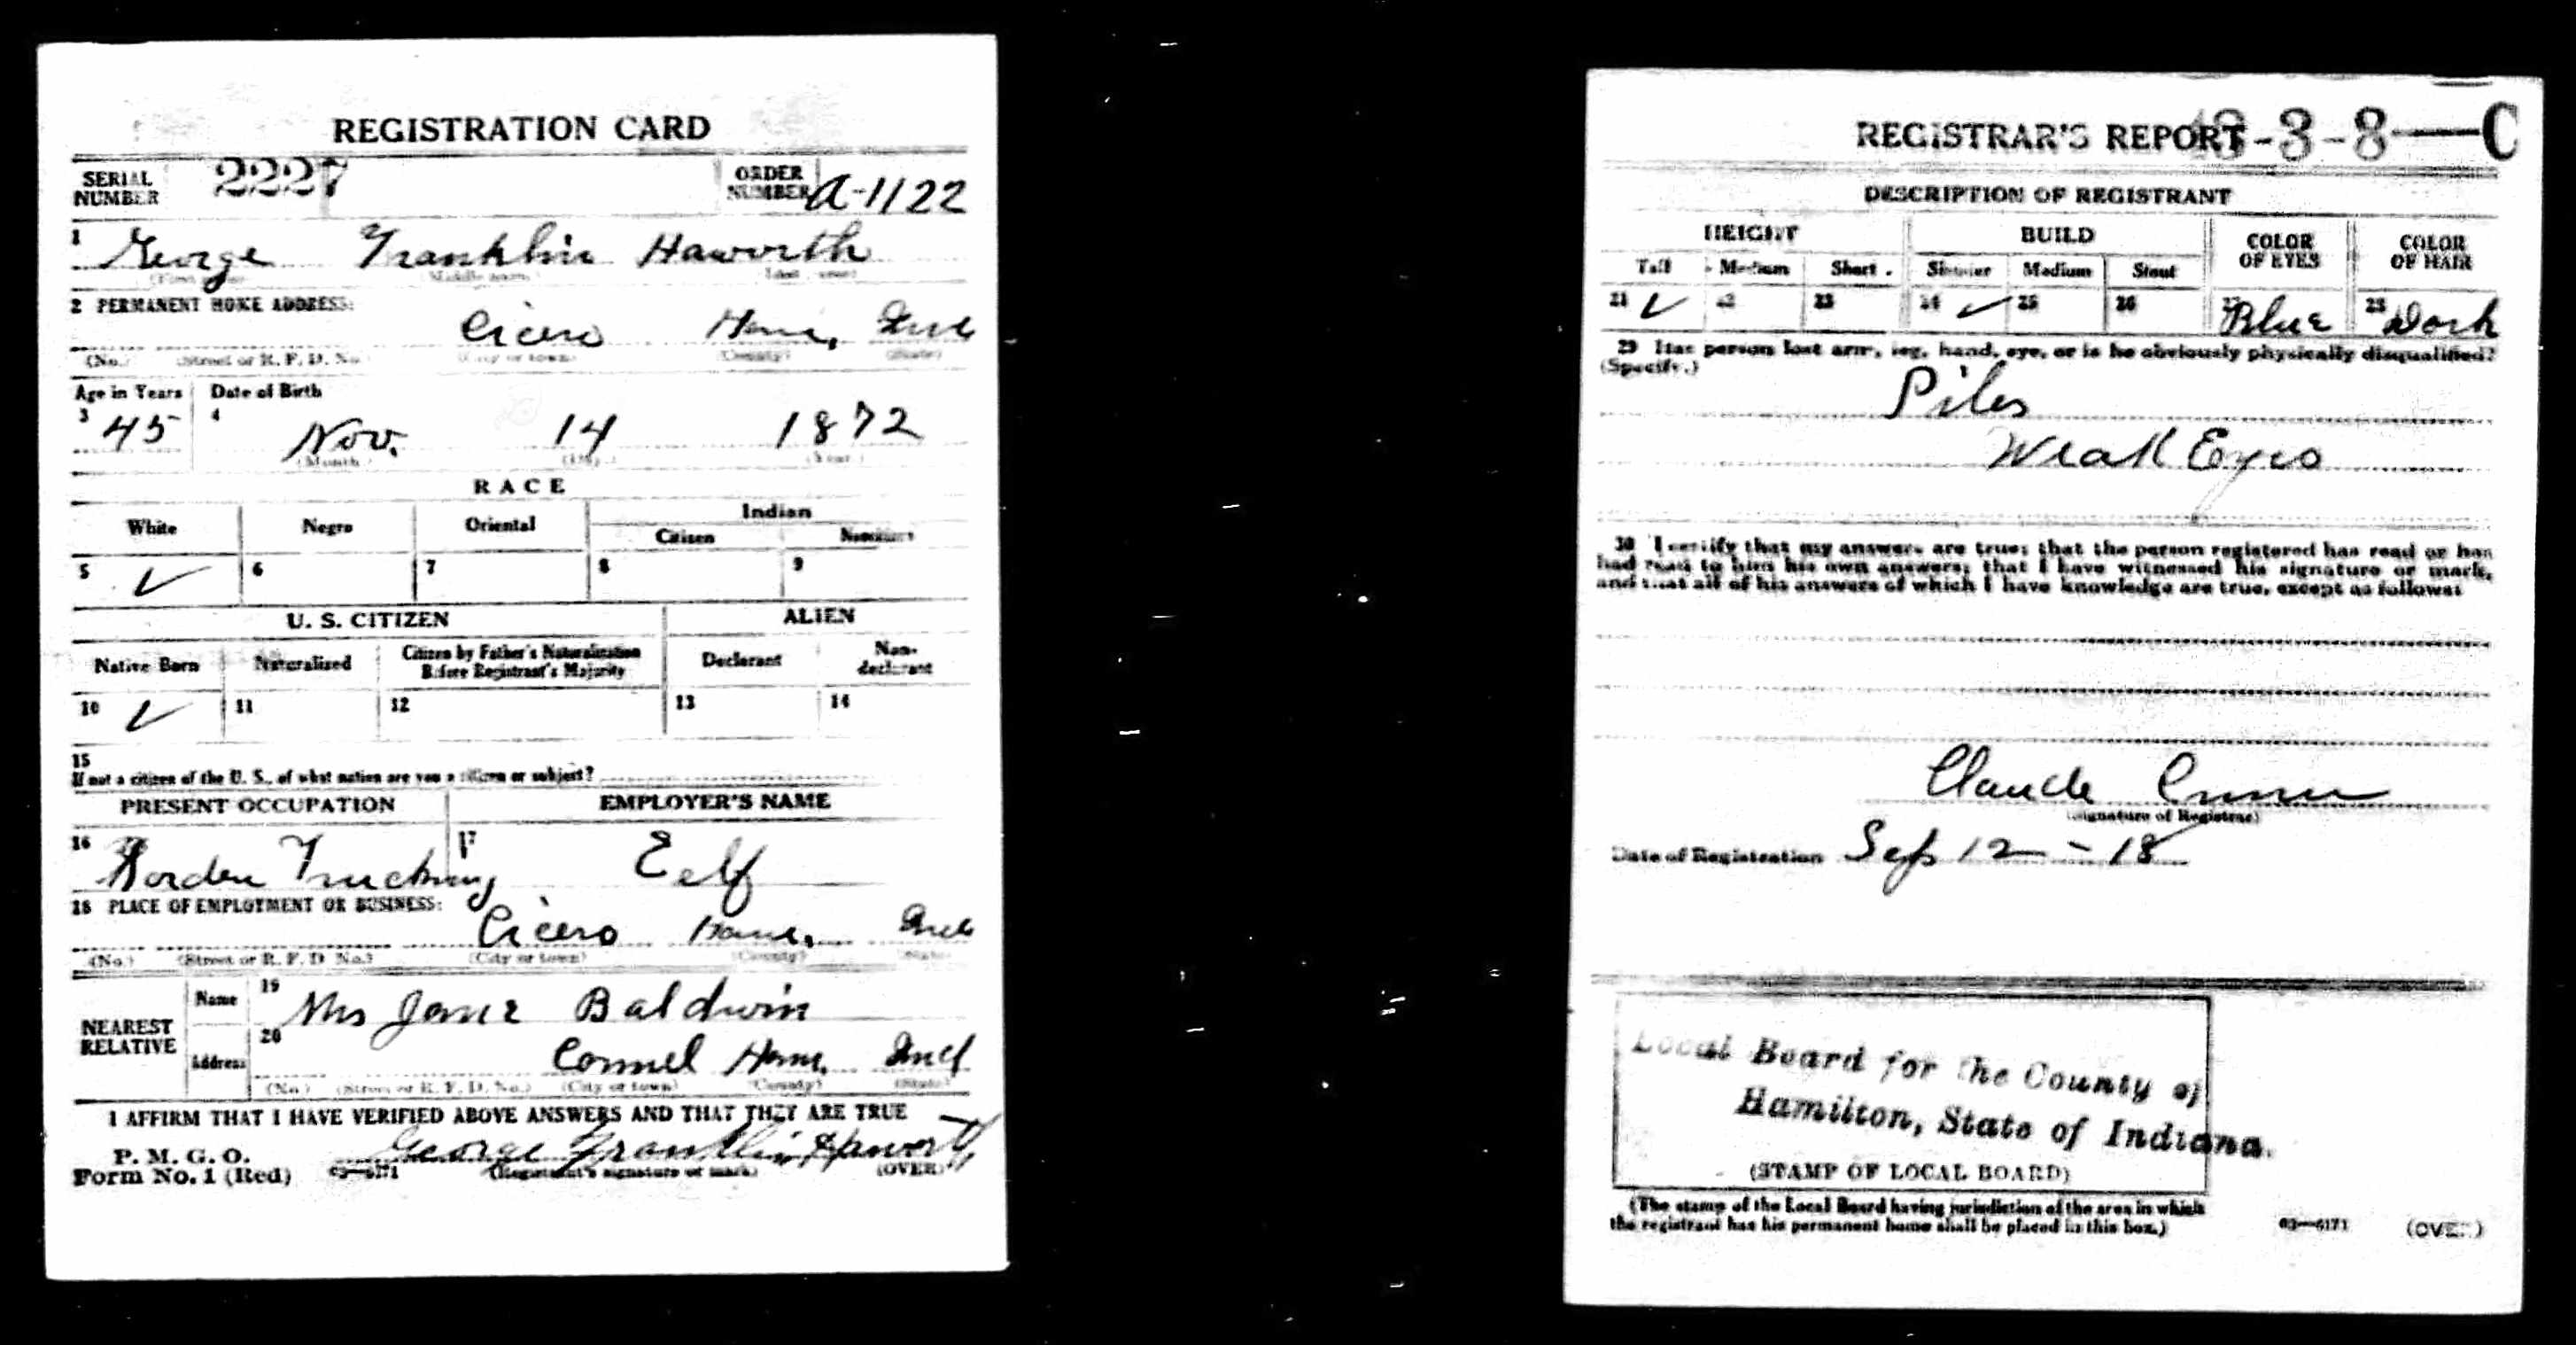 REGISTRATION CARD
SERIAL NUMBER 2227 ORDER NUMBER A-1122
1 George Franklin Haworth
(First name) (Middle name) (Last name)
2 PERMANENT HOME ADDRESS:
Cicero Ham. Ind
(No.) (Street or R. F. D. No.) (City or town) (County) (State)
Age in Years Date of Birth
3 45 4 Nov. 14 1872
(Month) (Day) (Year)
RACE
White Negro Oriental Indian
Citizen Noncitizen
5 ✓ 6 7 8 9
U. S. CITIZEN ALIEN
Native Born Naturalized Citizen by Father's Naturalization Before Registrant's Majority Declarant Non-declarant
10 ✓ 11 12 13 14
15
If not a citizen of the U. S., of what nation are you a citizen or subject?
PRESENT OCCUPATION EMPLOYER'S NAME
16 Trucking 17 Self
18 PLACE OF EMPLOYMENT OR BUSINESS:
Cicero Ham. Ind
(No.) (Street or R. F. D. No.) (City or town) (County) (State)
NEAREST RELATIVE
Name 19 Mrs Jane Baldwin
Address 20 Carmel Ham. Ind
(No.) (Street or R. F. D. No.) (City or town) (County) (State)
I AFFIRM THAT I HAVE VERIFIED ABOVE ANSWERS AND THAT THEY ARE TRUE
P. M. G. O.
Form No. 1 (Red) 03—6171 George Franklin Haworth
(Registrant's signature or mark) (OVER)
REGISTRAR'S REPORT
13-3-8—C
DESCRIPTION OF REGISTRANT
HEIGHT BUILD COLOR OF EYES COLOR OF HAIR
Tall Medium Short Slender Medium Stout
21 ✓ 22 23 24 ✓ 25 26 27 Blue 28 Dark
29 Has person lost arm, leg, hand, eye, or is he obviously physically disqualified?
(Specify.)
Piles
Weak Eyes
30 I certify that my answers are true; that the person registered has read or has
had read to him his own answers; that I have witnessed his signature or mark,
and that all of his answers of which I have knowledge are true, except as follows:
Claude
(Signature of Registrar)
Date of Registration Sep 12 - 18
Local Board for the County of
Hamilton, State of Indiana.
(STAMP OF LOCAL BOARD)
(The stamp of the Local Board having jurisdiction of the area in which
the registrant has his permanent home shall be placed in this box.)
03—6171 (OVER)